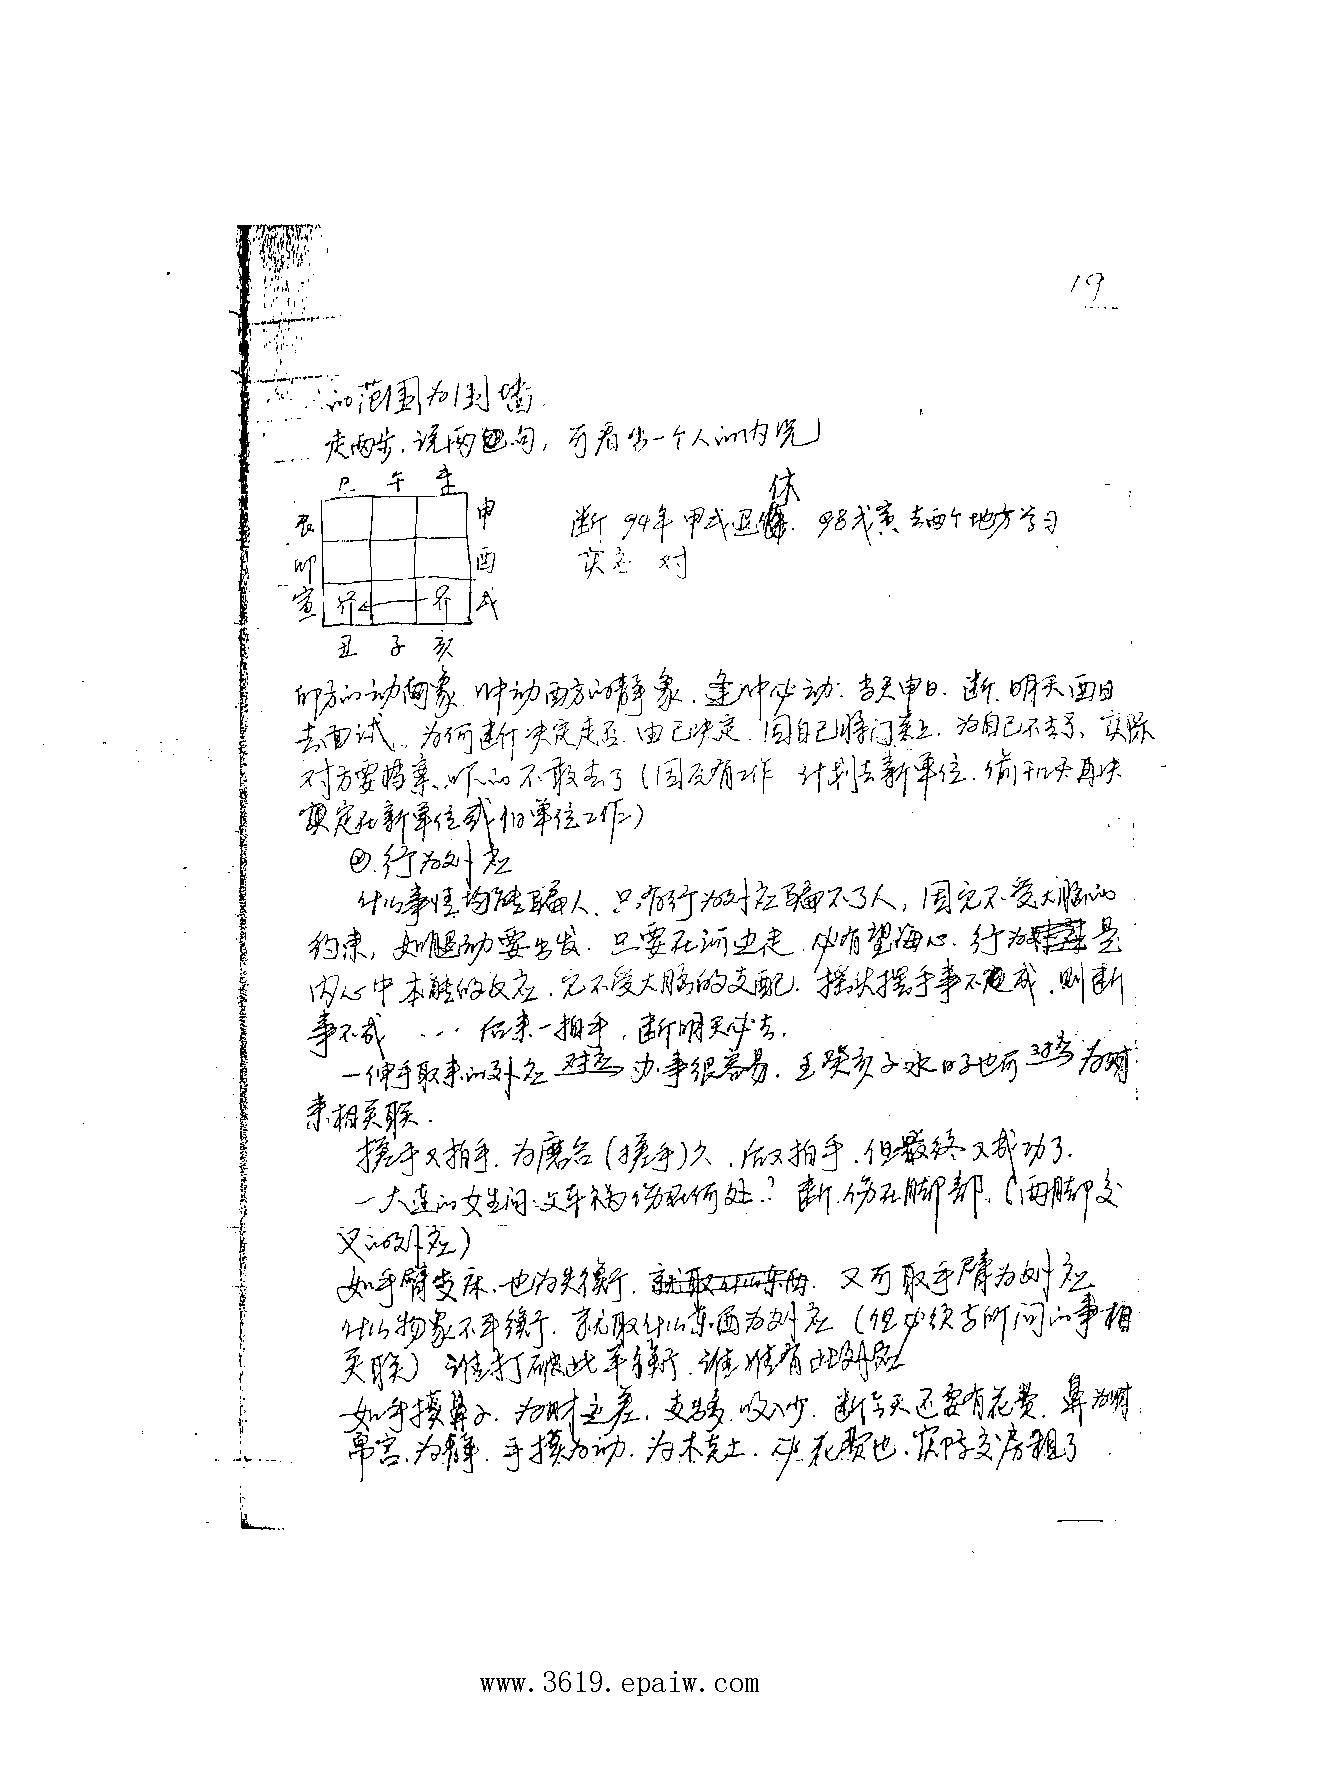 19
的范围为围墙.
走两步.说两句,可看出一个人的内况
巳 午 未
辰 申
卯 酉
寅 戌
丑 子 亥
断 94年甲戌 休. 98戊寅去两个地方学习
实念 对
卯方的动象 冲动酉方的静象.逢冲必动.当天申日.断.明天酉日
去面试.为何断决定走否.由己决定.因自己将门关上.为自己不去了、实际
对方要档案、吓的不敢去了(因在有工作 计划去新单位.
定在新单位或旧单位工作)
行为外应
什么事情均能骗人.只有行为外应骗不了人,因它不受大脑的
约束,如腿动要出发.只要在河边走.必有望海心.行为是
内心中本能的反应.它不受大脑的支配.摇头摆手事不成.则断
事不成 … 后来一拍手.断明天必去.
一伸手取来的外应 对应 办事很容易.壬癸亥子水日子也可 对 为财
来相关联.
搓手又拍手.为磨合(搓手)久.后又拍手.但最终又成功了.
一大连的女生问:父车祸伤在何处?断.伤在脚部.(两脚交
叉的外应)
如手臂支床.也为失衡.又可取手臂为外应
什么物象不平衡.就取什么东西为外应(但必须与所问的事相
关联)谁打破此平衡.谁准有此外应
如手摸鼻子.为财运差.支多.吸入少.断今天还要有花费.鼻为财
帛宫.为静.手摸为动.为木克土.必花费也.实际交房租了
www.3619.epaiw.com